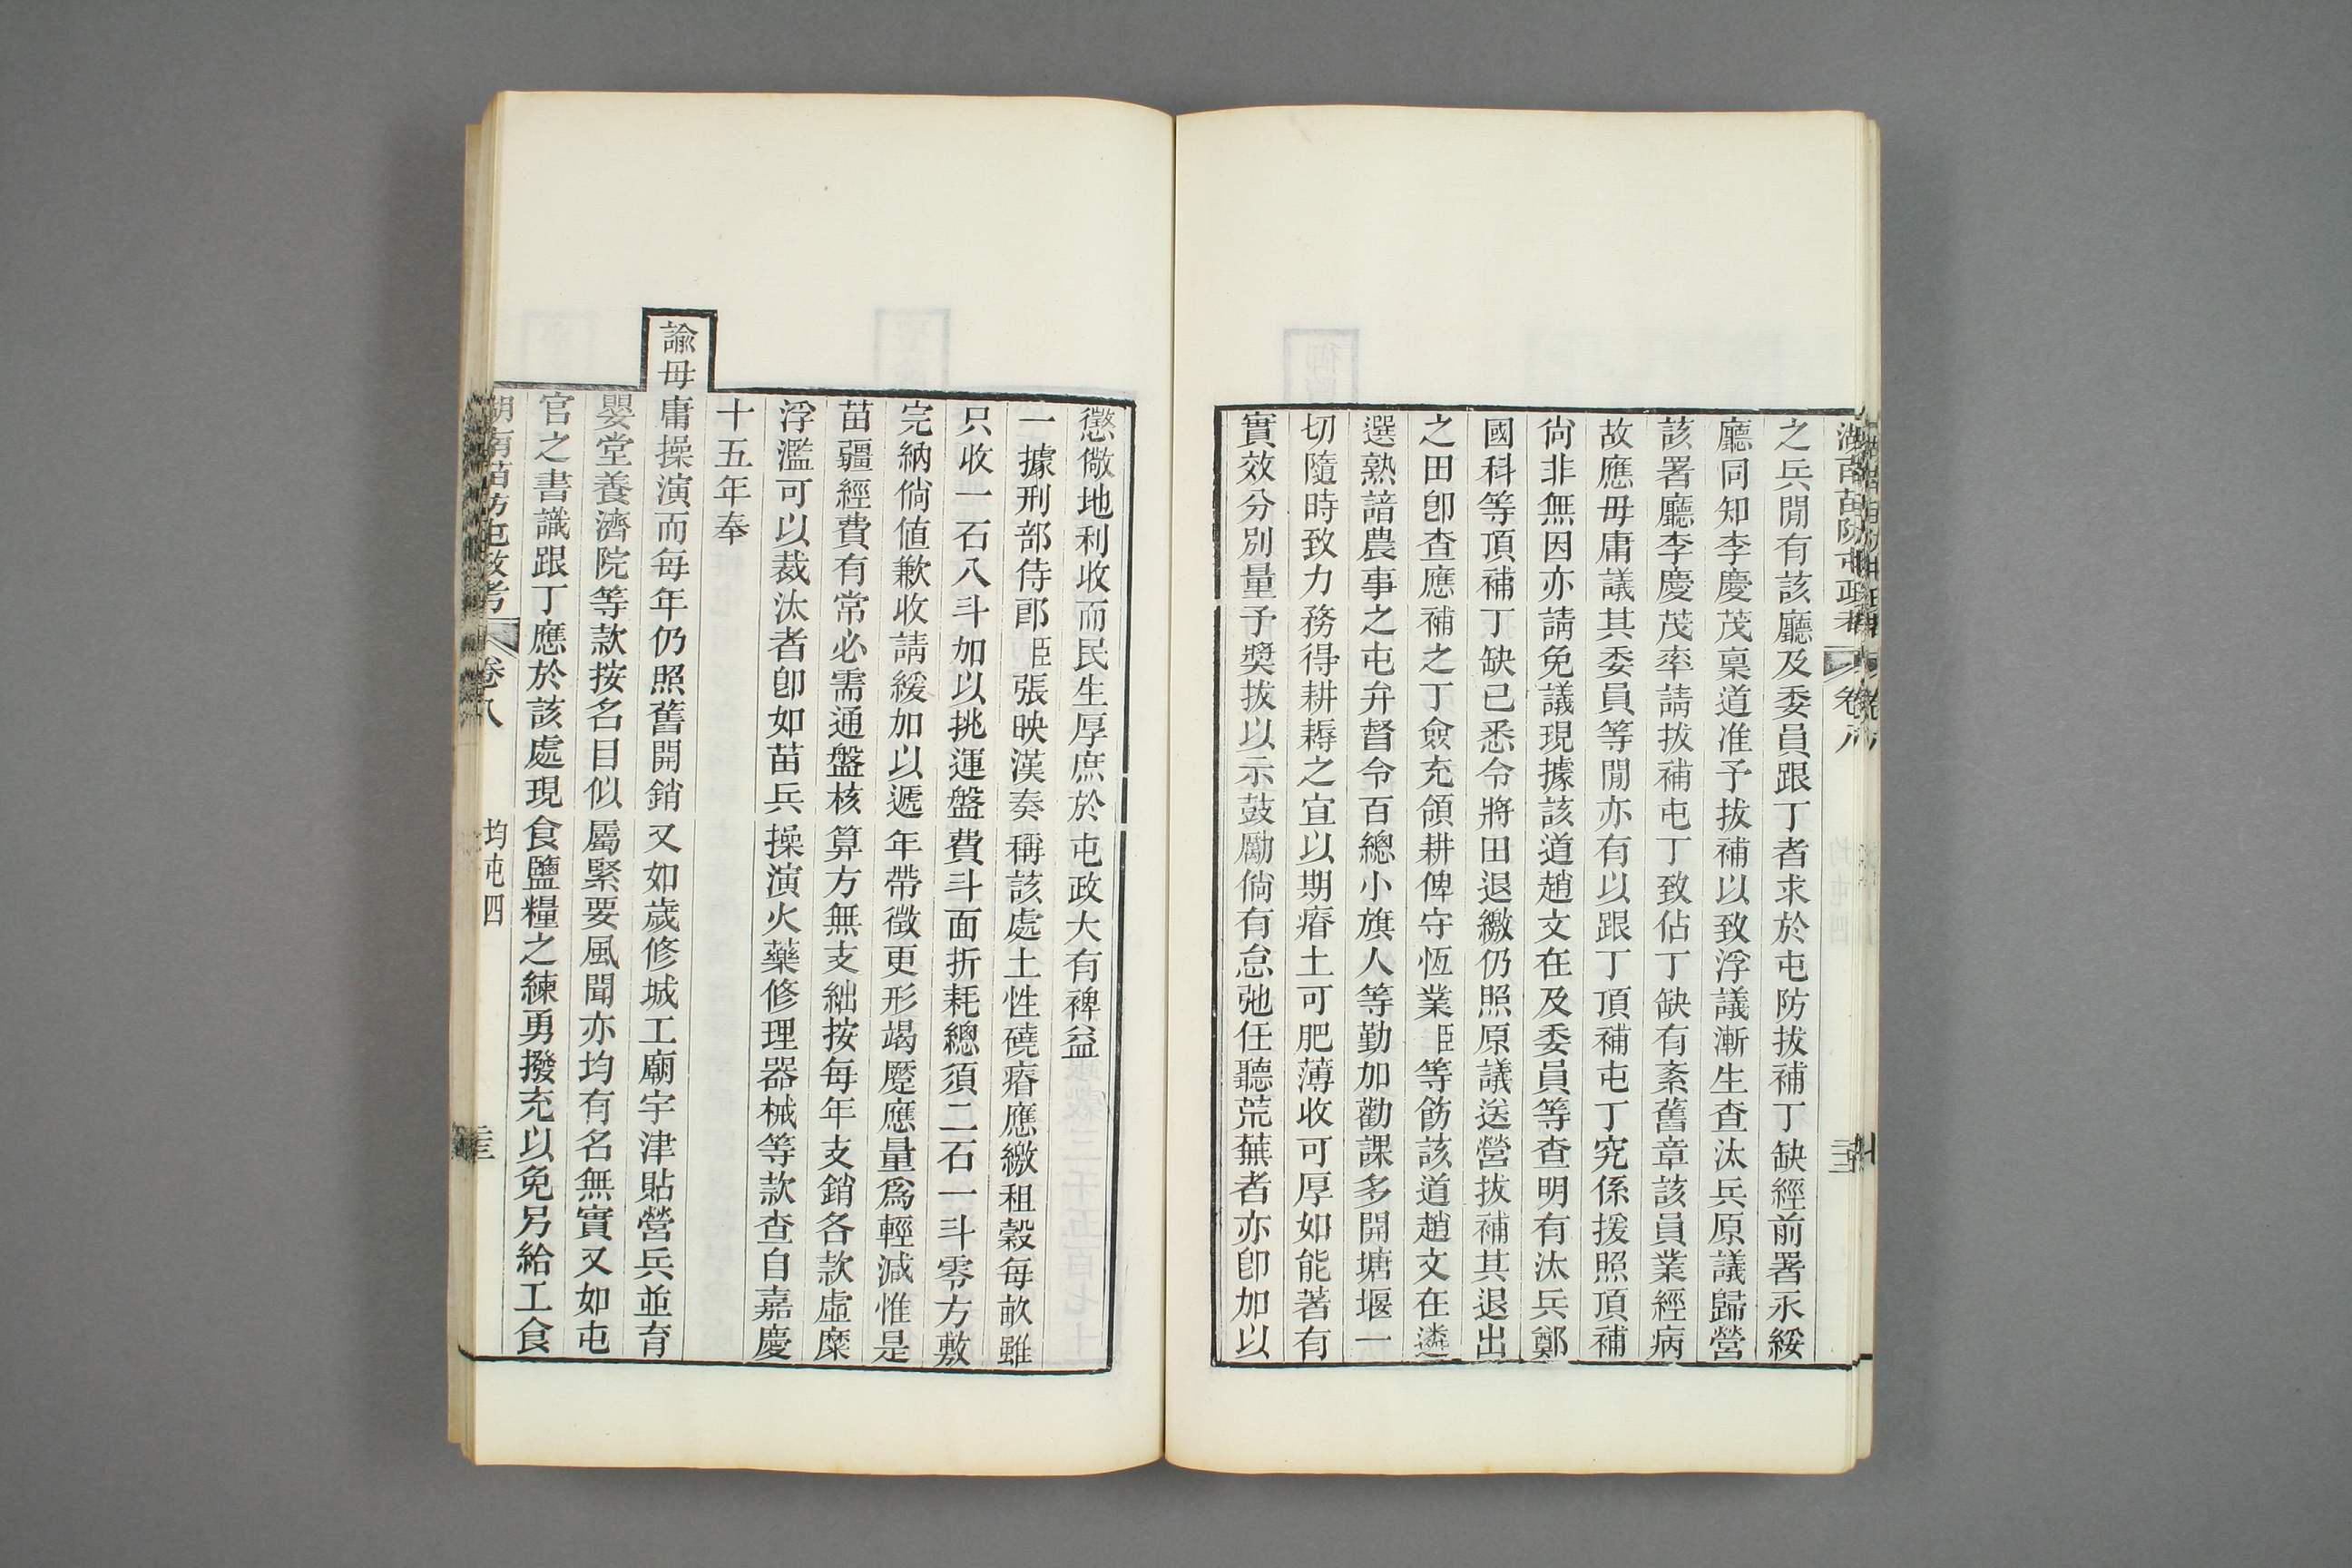 湖南苗防屯政考 卷八
之兵閒有該廳及委員跟丁者求於屯防拔補丁缺經前署永綏
廳同知李慶茂稟道准予拔補以致浮議漸生查汰兵原議歸營
該署廳李慶茂率請拔補屯丁致佔丁缺有紊舊章該員業經病
故應毋庸議其委員等閒亦有以跟丁頂補屯丁究係援照頂補
尙非無因亦請免議現據該道趙文在及委員等查明有汰兵鄭
國科等頂補丁缺已悉令將田退繳仍照原議送營拔補其退出
之田卽查應補之丁僉充領耕俾守恆業臣等飭該道趙文在遴
選熟諳農事之屯弁督令百總小旗人等勤加勸課多開塘堰一
切隨時致力務得耕耨之宜以期瘠土可肥薄收可厚如能著有
實效分別量予獎拔以示鼓勵倘有怠弛任聽荒蕪者亦卽加以
懲儆地利收而民生厚庶於屯政大有裨益
一據刑部侍郎臣張映漢奏稱該處土性磽瘠應繳租穀每畝雖
只收一石八斗加以挑運盤費斗面折耗總須二石一斗零方敷
完納倘値歉收請緩加以遞年帶徵更形竭蹷應量爲輕減惟是
苗疆經費有常必需通盤核算方無支絀按每年支銷各款虛糜
浮濫可以裁汰者卽如苗兵操演火藥修理器械等款查自嘉慶
十五年奉
諭毋庸操演而每年仍照舊開銷又如歲修城工廟宇津貼營兵並育
嬰堂養濟院等款按名目似屬緊要風聞亦均有名無實又如屯
官之書識跟丁應於該處現食鹽糧之練勇撥充以免另給工食
湖南苗防屯政考 卷八 均屯四